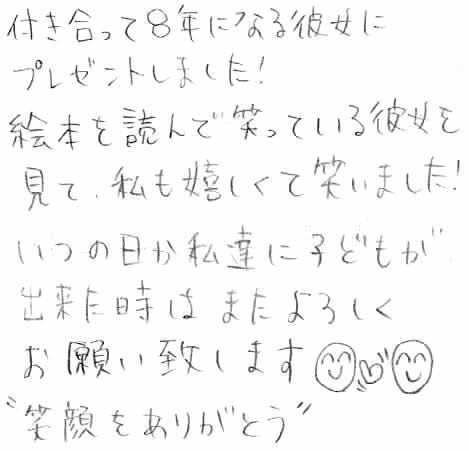 付き合って8年になる彼女に
プレゼントしました!
絵本を読んで笑っている彼女を
見て、私も嬉しくて笑いました!
いつの日か私達に子どもが
出来た時はまたよろしく
お願い致します
"笑顔をありがとう"